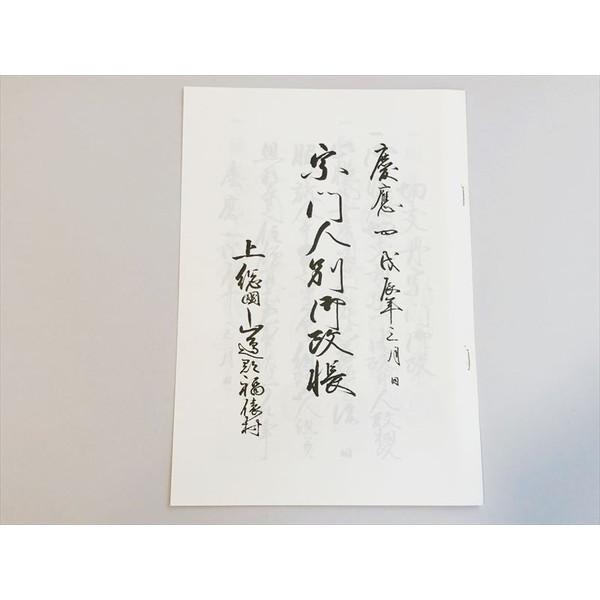 慶應四戊辰年三月日
宗門人別御改帳
上総国山辺郡福俵村